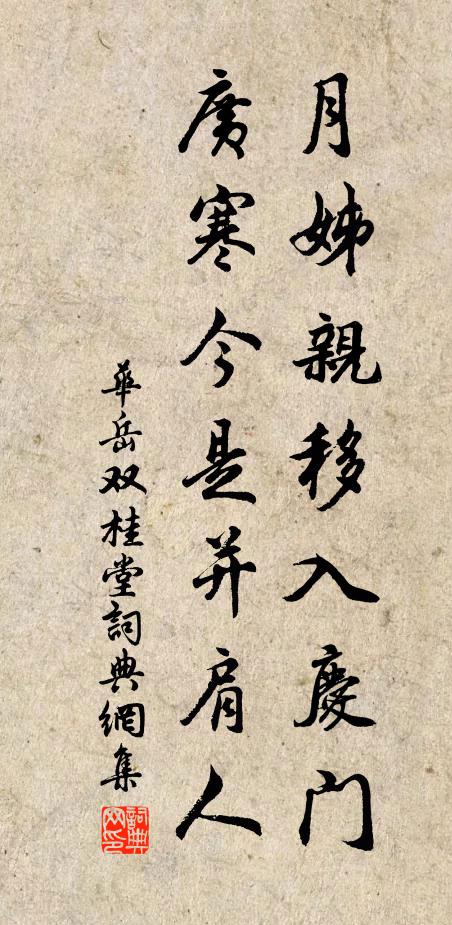 月姊親移入慶門
廣寒今是并肩人
華岳双桂堂詞典網集
詞典网印